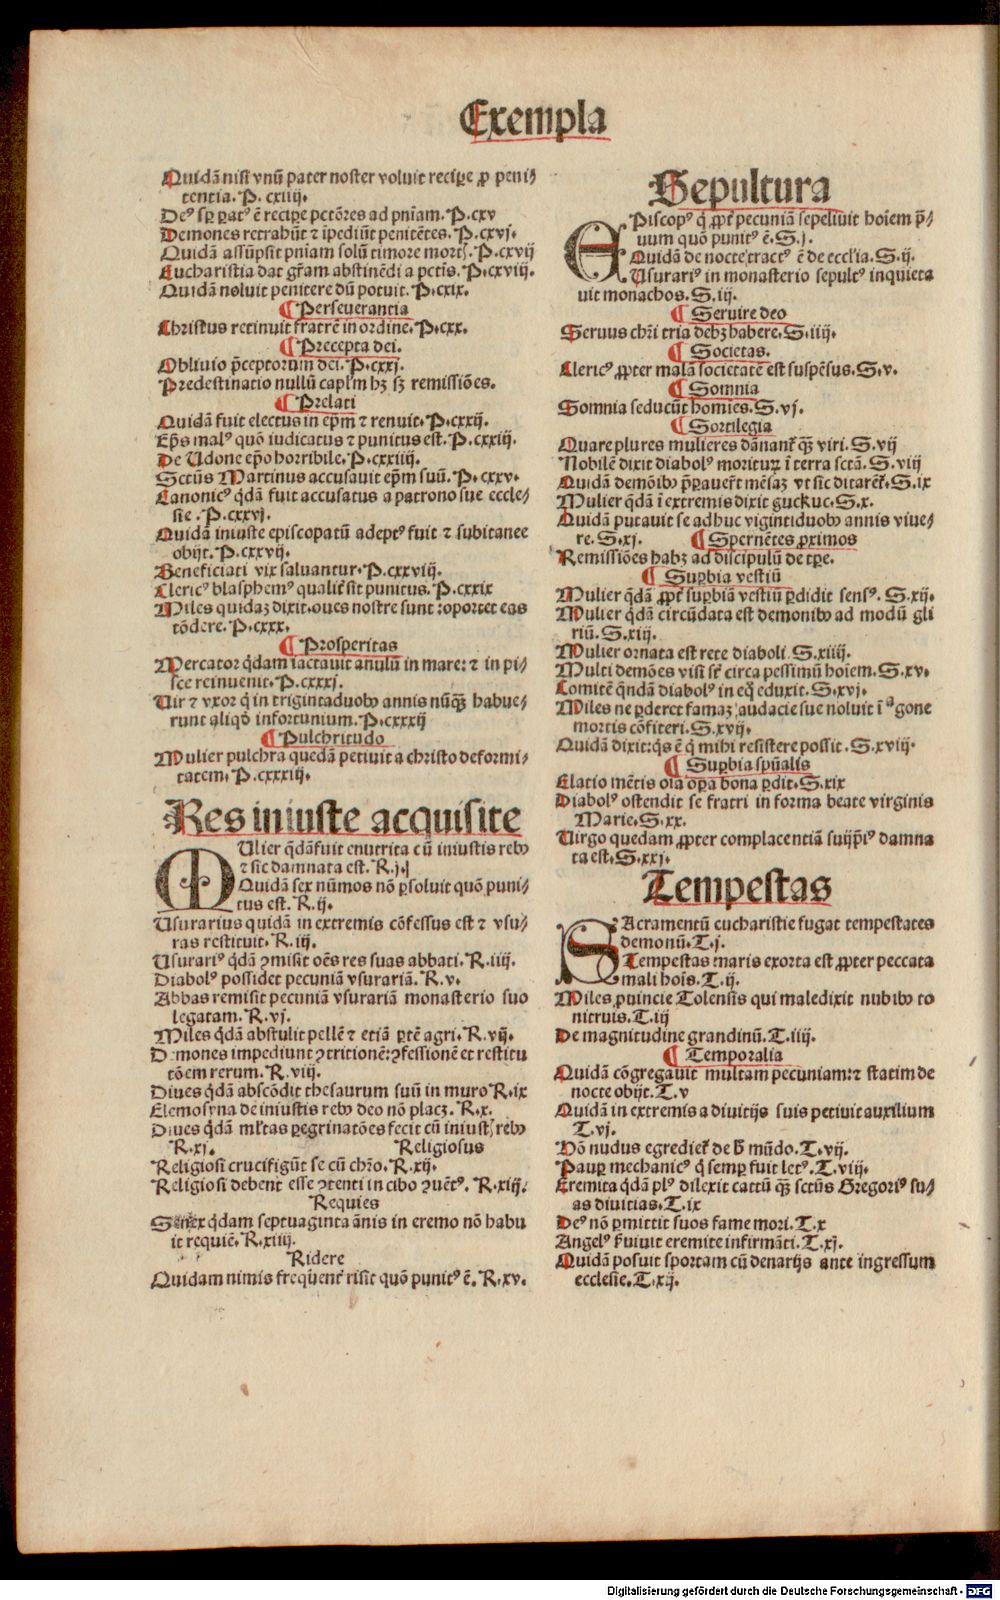 Exempla
Quidā nisi vnū pater noster voluit recipe ꝓ peni⸗
tentia. P. cxiiij.
Deꝰ sꝑ ꝑatꝰ ē recipe pctōres ad pniam. P. cxv
Demones retrahūt ⁊ ipediūt penitētes. P. cxvj.
Quidā assūpsit pniam solū timore mortꝭ. P. cxvij
Eucharistia dat grām abstinēdi a pctis. P. cxviij.
Quidā noluit penitere dū potuit. P. cxix.
¶ Perseverantia
Christus retinuit fratrē in ordine. P. cxx.
¶ Precepta dei.
Obliuio p̄ceptorum dei. P. cxxj.
Predestinatio nullū caplm hꝫ sꝫ remissiōes.
¶ Prelati
Quidā fuit electus in epm̄ ⁊ renuit. P. cxxij.
Ep̄s malꝰ quō iudicatus ⁊ punitus est. P. cxxiij.
De Udone ep̄o horribile. P. cxxiiij.
Sctūs Martinus accusauit epm̄ suū. P. cxxv.
Canonicꝰ q̄dā fuit accusatus a patrono sue eccle⸗
sie. P. cxxvj.
Quidā iniuste episcopatū adeptꝰ fuit ⁊ subitanee
obijt. P. cxxvij.
Beneficiati vix saluantur. P. cxxviij.
Clericꝰ blasphemꝰ qualit̄ sit punitus. P. cxxix
Miles quidaꝫ dixit. oues nostre sunt : oportet eas
tōdere. P. cxxx.
¶ Prosperitas
Mercator q̄dam iactauit anulū in mare: ⁊ in pi⸗
sce reinuenit. P. cxxxj.
Uir ⁊ vxor q̄ in trigintaduobꝰ annis nūqꝫ habue⸗
runt aliqd̓ infortunium. P. cxxxij
¶ Pulchritudo
Mulier pulchra quedā petiuit a christo deformi⸗
tatem. P. cxxxiij.
Res iniuste acquisite
MUlier q̄dā fuit enutrita cū iniustis rebꝰ
⁊ sic damnata est. R. j.
Quidā sex nūmos nō ꝑsoluit quō puni⸗
tus est. R. ij.
Usurarius quidā in extremis cōfessus est ⁊ vsu⸗
ras restituit. R. iij.
Usurariꝰ q̄dā ꝯmisit oēs res suas abbati. R. iiij.
Diabolꝰ possidet pecuniā vsurariā. R. v.
Abbas remisit pecuniā vsurariā monasterio suo
legatam. R. vj.
Miles q̄dā abstulit pellē ⁊ etiā ꝑtē agri. R. vij.
Demones impediunt ꝯtritionē: ꝯfessionē et restitu
tōem rerum. R. viij.
Diues q̄dā abscōdit thesaurum suū in muro R. ix
Elemosyna de iniustis rebꝰ deo nō placꝫ. R. x.
Diues q̄dā ml̓tas ꝑegrinatōes fecit cū iniustꝭ rebꝰ
R. xj. Religiosus
Religiosi crucifigūt se cū chr̄o. R. xij.
Religiosi debent esse ꝯtenti in cibo ꝯuētꝰ. R. xiij.
Requies
Senex q̄dam septuaginta ānis in eremo nō habu
it requiē. R. xiiij.
Ridere
Quidam nimis freq̄nter risit quō punitꝰ ē. R. xv.
Sepultura
EPiscopꝰ q̄ ꝓpt̄ pecuniā sepeliuit hoīem p̄⸗
uum quō punitꝰ ē. S. j.
Quidā de nocte tractꝰ ē de ecclīa. S. ij.
Usurariꝰ in monasterio sepultꝰ inquieta
uit monachos. S. iij.
¶ Seruire deo
Seruus chr̄i tria debꝫ habere. S. iiij.
¶ Societas.
Clericꝰ ꝓpter malā societatē est suspēsus. S. v.
¶ Somnia
Somnia seducūt homīes. S. vj.
¶ Sortilegia
Quare plures mulieres dānant̄ qꝫ viri. S. vij
Nobilē dixit diabolꝰ moritur i terra sctā. S. viij
Quidā demōibꝰ p̄parauert̄ mēsaꝫ vt sic ditaret̄. S. ix
Mulier q̄dā i extremis dixit guckuc. S. x.
Quidā putauit se adhuc vigintiduobꝰ annis viue⸗
re. S. xj. ¶ Spernētes ꝓximos
Remissiōes habꝫ ad discipulū de tꝑe.
¶ Suꝑbia vestiū
Mulier q̄dā ꝓpt̄ suꝑbiā vestiū ꝑdidit sensꝰ. S. xij.
Mulier q̄dā circūdata est demonibꝰ ad modū gli
riū. S. xiij.
Mulier ornata est rete diaboli. S. xiiij.
Multi demōes visi st̄ circa pessimū hoīem. S. xv.
Comitē q̄ndā diabolꝰ in eq̄ eduxit. S. xvj.
Miles ne ꝑderet famaꝫ audacie sue noluit i agone
mortis cōfiteri. S. xvij.
Quidā dixit: q̄s ē q̄ mihi resistere possit. S. xviij.
¶ Suꝑbia spūalis
Elatio mētis oīa oꝑa bona ꝑdit. S. xix
Diabolꝰ ostendit se fratri in forma beate virginis
Marie. S. xx.
Uirgo quedam ꝓpter complacentiā suijpīꝰ damna
ta est. S. xxj.
Tempestas
SAcramentū eucharistie fugat tempestates
demonū. T. j.
Tempestas maris exorta est ꝓpter peccata
mali hoīs. T. ij.
Miles ꝓuincie Tolensis qui maledixit nubibꝰ to
nitruis. T. iij
De magnitudine grandinū. T. iiij.
¶ Temporalia
Quidā cōgregauit multam pecuniam: ⁊ statim de
nocte obijt. T. v
Quidā in extremis a diuitijs suis petiuit auxilium
T. vj.
Hō nudus egrediet̄ de h̓ mūdo. T. vij.
Pauꝑ mechanicꝰ q̄ semꝑ fuit letꝰ. T. viij.
Eremita q̄dā plꝰ dilexit cattū qꝫ sctūs Gregoriꝰ su⸗
as diuitias. T. ix
Deꝰ nō ꝑmittit suos fame mori. T. x
Angelꝰ ẜuiuit eremite infirmāti. T. xj.
Quidā posuit sportam cū denarijs ante ingressum
ecclesie. T. xij.
Digitalisierung gefördert durch die Deutsche Forschungsgemeinschaft - DFG